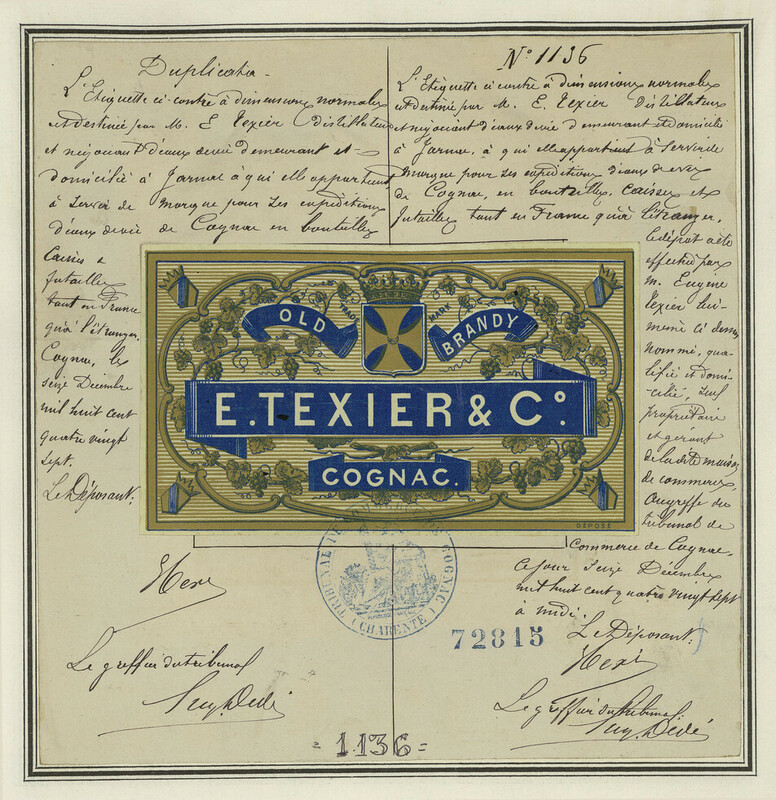 Duplicata
L'Etiquette ci contre à dimensions normales
est destinée par M. E Texier distillateur
et négociant d'eaux de vie demeurant et
domicilié à Jarnac à qui elle appartient
à servir de marque pour ses expéditions
d'eaux de vie de Cognac en bouteilles
Caisses &
futailles
tant en France
qu'à l'étranger.
Cognac, le
seize Décembre
mil huit cent
quatre vingt
sept.
Le Déposant.
Le greffier du tribunal
N° 1136
L'Etiquette ci contre à dimensions normales
est destinée par M. E. Texier distillateur
et négociant d'eaux de vie demeurant et domicilié
à Jarnac, à qui elle appartient à servir de
marque pour ses expéditions d'eaux de vie
de Cognac, en bouteilles, caisses et
futailles tant en France qu'à l'étranger,
le dépôt a été
effectué par
M. Eugène
Texier lui-
même ci dessus
nommé, qua-
lifié et domi-
cilié, seul
propriétaire
et gérant
de la dite maison
de commerce,
au greffe du
tribunal de
Commerce de Cognac,
ce jour seize Décembre
mil huit cent quatre vingt sept
à midi.
Le Déposant:
Le greffier du tribunal.
OLD
TRADE
MARK
BRANDY
E. TEXIER & C°.
COGNAC.
DÉPOSÉ
TRIBUNAL DE COMMERCE DE COGNAC
(CHARENTE)
72815
= 1.136 =